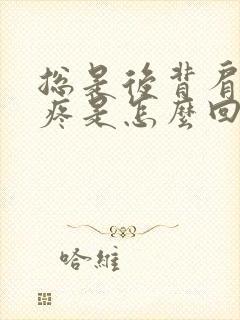 總是後背肩
疼是怎麼回
哈維